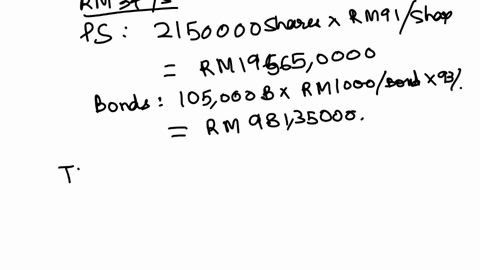 PS: 2150000 shares x RM91/Shop
= RM19565,0000
Bonds: 105,000 B x RM1000/bond x 93%.
= RM 981,35000.
T